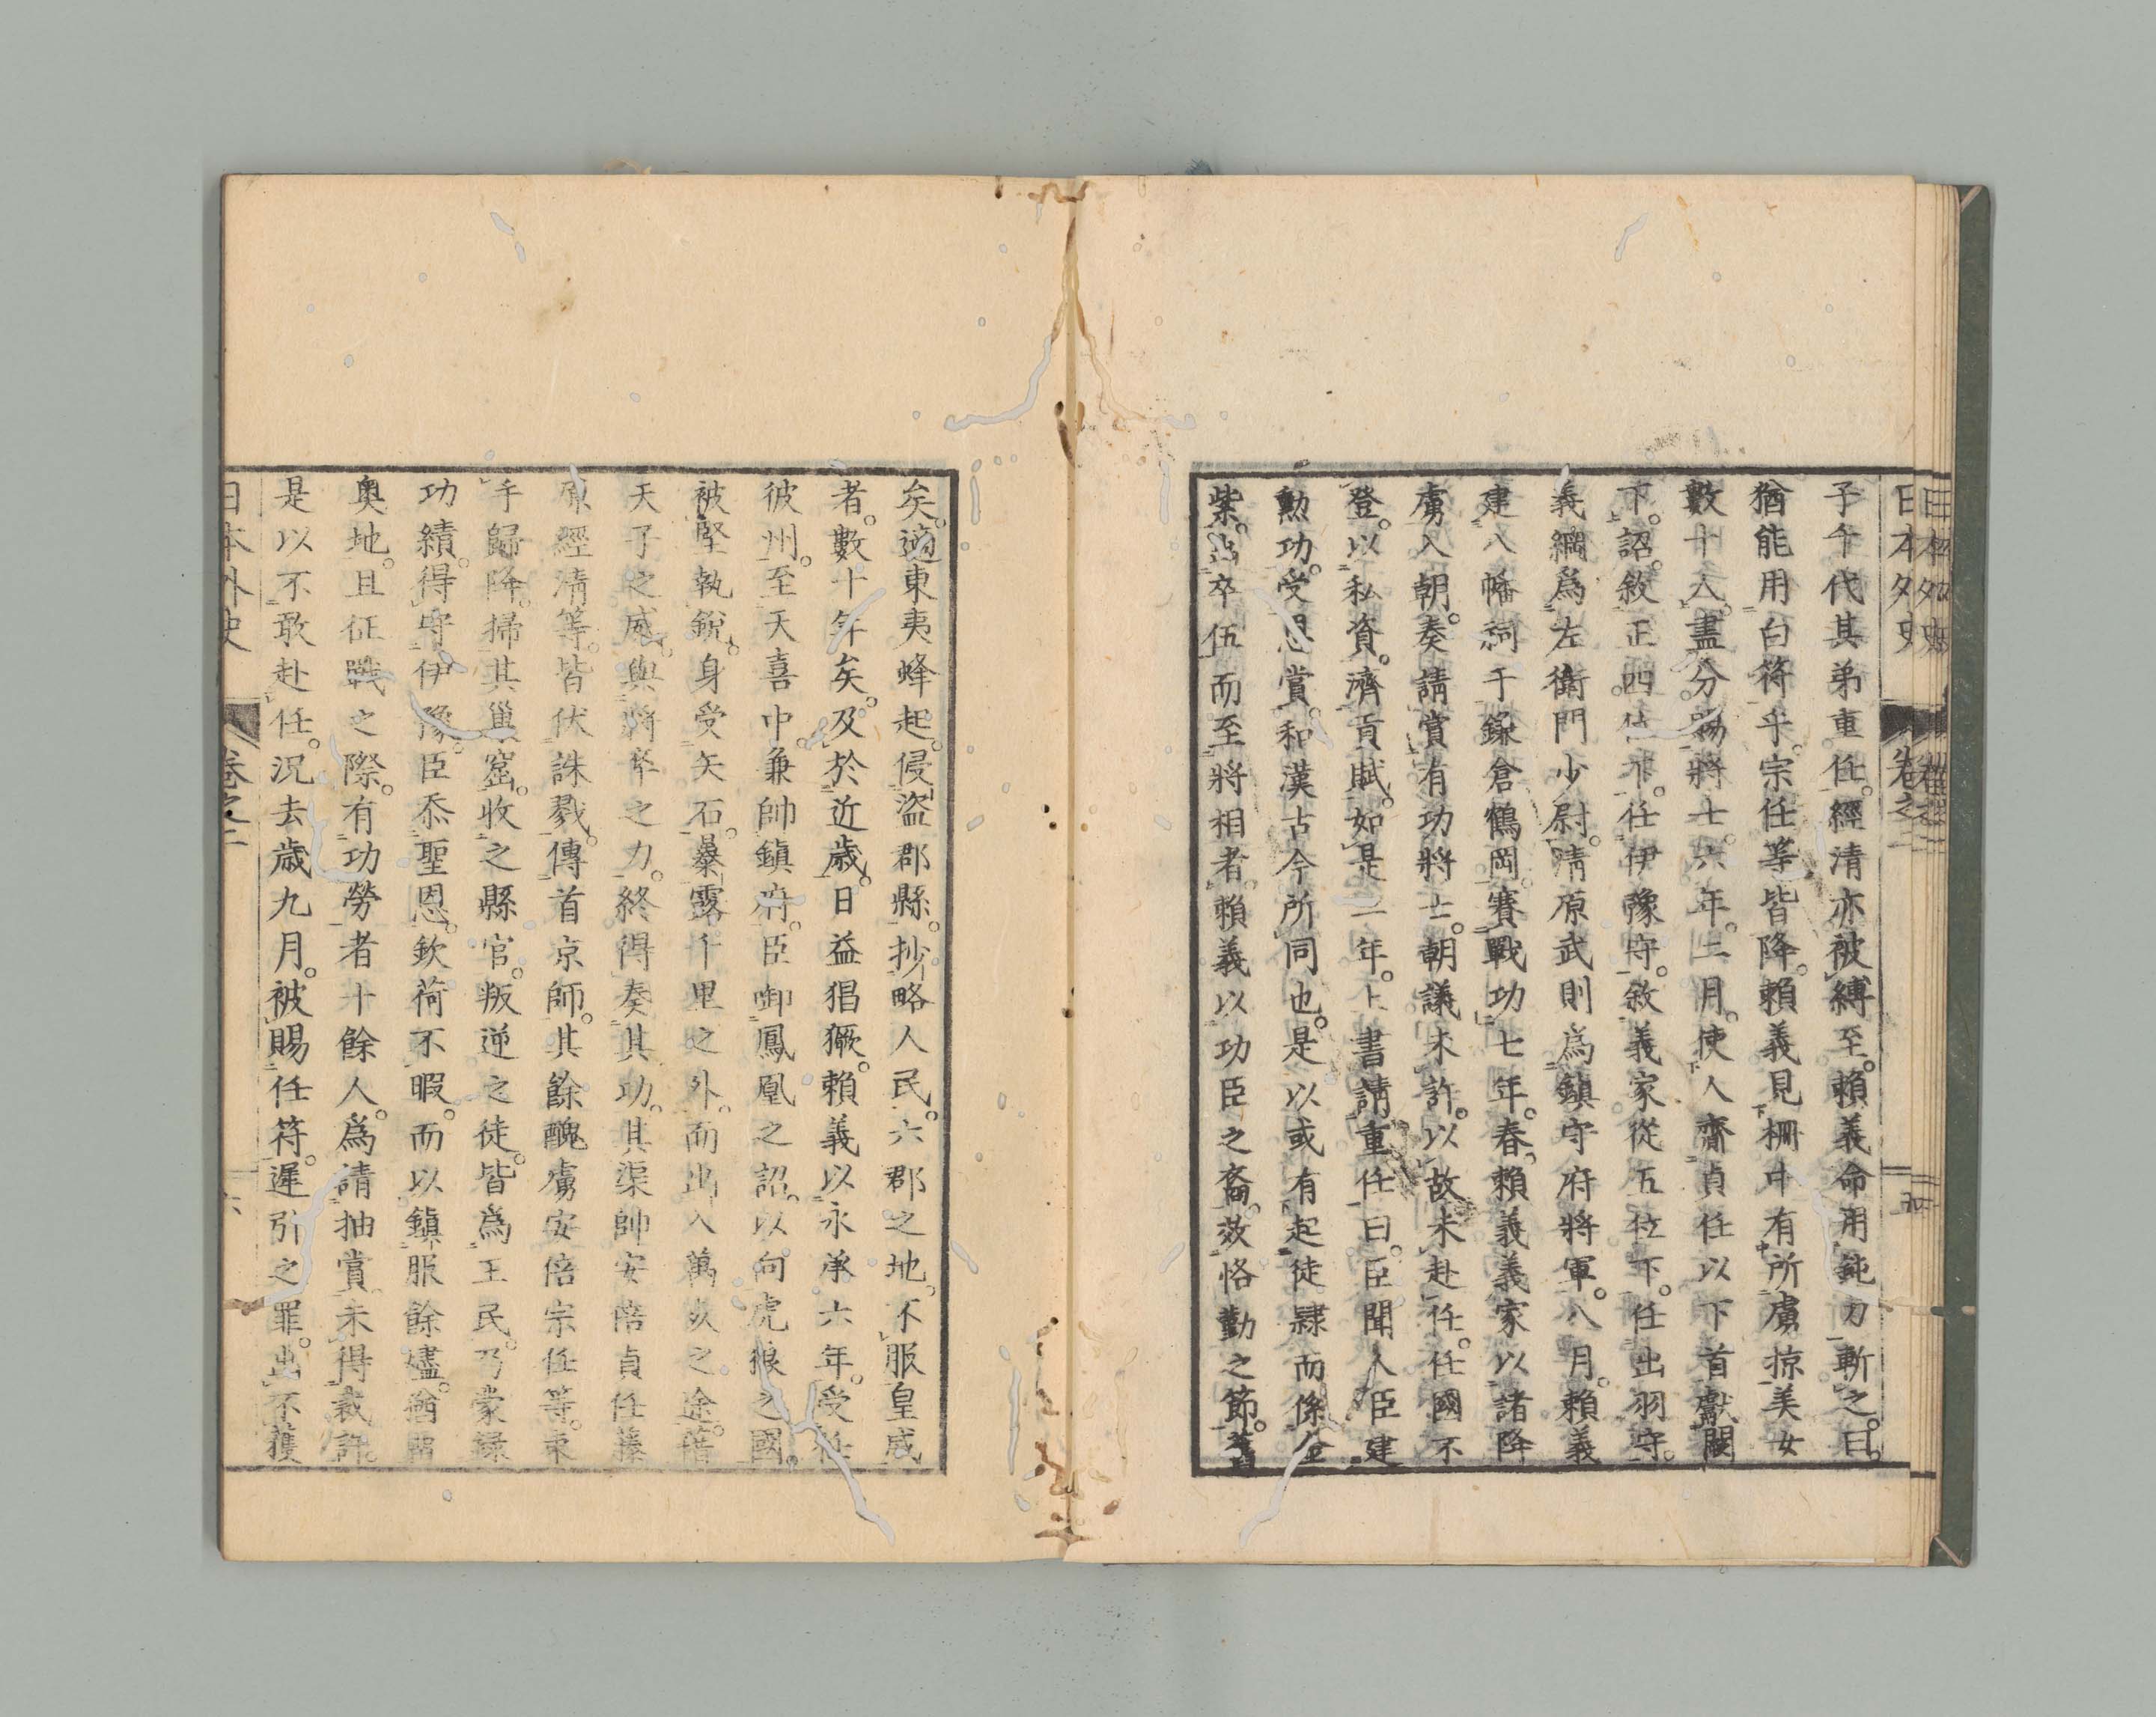 日本外史 卷之二
子千代其弟重任。經清亦被縛至。賴義命用鈍刀斬之。曰。
猶能用白符乎。宗任等皆降。賴義見柵中有所虜掠美女
數十人。盡分賜將士。六年。二月。使人齎貞任以下首獻闕
下。詔敘正四位下。任伊豫守。敘義家從五位下。任出羽守。
義綱爲左衛門少尉。清原武則爲鎮守府將軍。八月。賴義
建八幡祠于鎌倉鶴岡。賽戰功。七年。春。賴義義家以諸降
虜入朝。奏請賞有功將士。朝議未許。以故未赴任。任國不
登。以私資。濟貢賦。如是二年。上書請重任曰。臣聞人臣建
勳功。受恩賞。和漢古今所同也。是以或有起徒隸而係金
紫。出卒伍而至將相者。賴義以功臣之裔。效恪勤之節。
矣。適東夷蜂起。侵盜郡縣。抄略人民。六郡之地。不服皇威
者。數十年矣。及於近歲。日益猖獗。賴義以永承六年。受任
彼州。至天喜中。兼帥鎮府。臣啣鳳凰之詔。以向虎狼之國。
被堅執銳。身受矢石。暴露千里之外。而出入萬死之途。藉
天子之威。與將卒之力。終得奏其功。其渠帥安倍貞任藤
原經清等。皆伏誅戮。傳首京師。其餘醜虜安倍宗任等。束
手歸降。掃其巢窟。收之縣官。叛逆之徒。皆爲王民。乃蒙錄
功績。得守伊豫。臣忝聖恩。欽荷不暇。而以鎮服餘燼。猶留
奧地。且征戰之際。有功勞者十餘人。爲請抽賞。未得裁許。
是以不敢赴任。況去歲九月。被賜任符。遲引之罪。出不獲
日本外史 卷之二